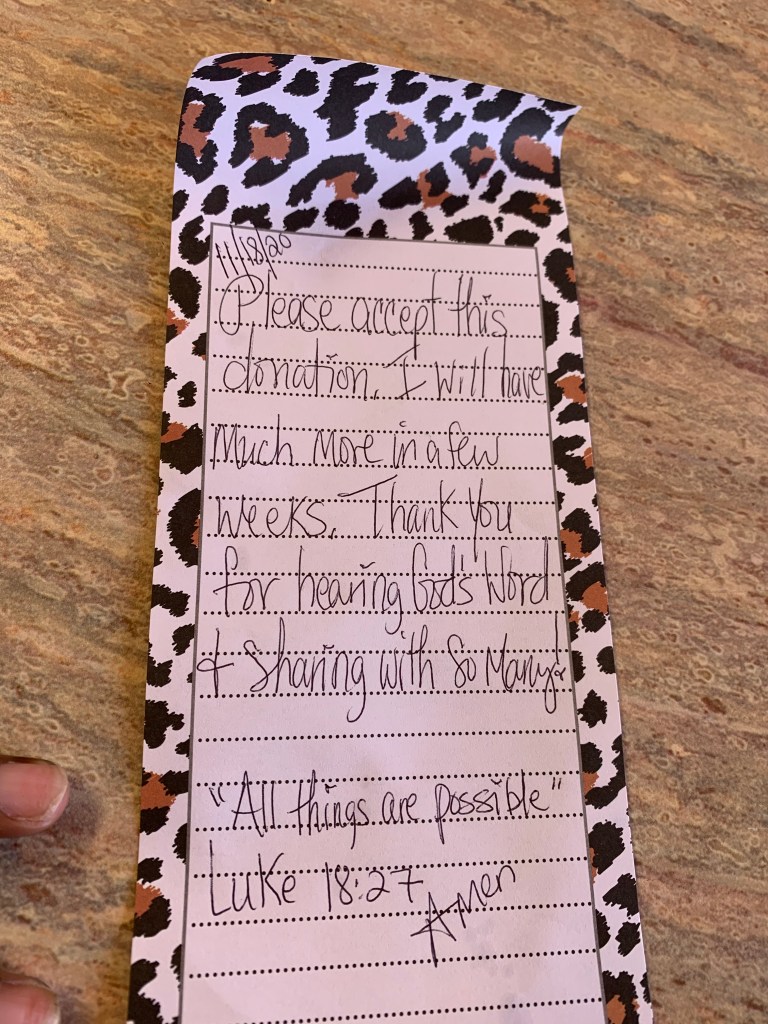 11/18/20
Please accept this
donation. I will have
Much More in a few
weeks. Thank You
for hearing God's Word
& Sharing with So Many!
"All things are possible"
Luke 18:27
Amen